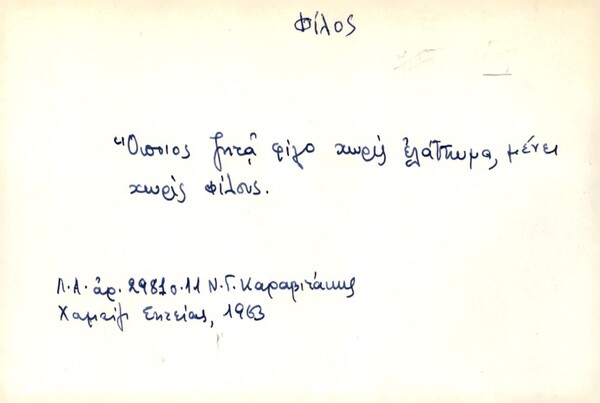 Φίλος
Ὅποιος ζητᾷ φίλο χωρὶς ἐλάττωμα, μένει
χωρὶς φίλους.
Λ.Α. ἀρ. 2981 σ. 11 Ν. Γ. Καραβιτάκης
Χαμαίζι Σητείας, 1963